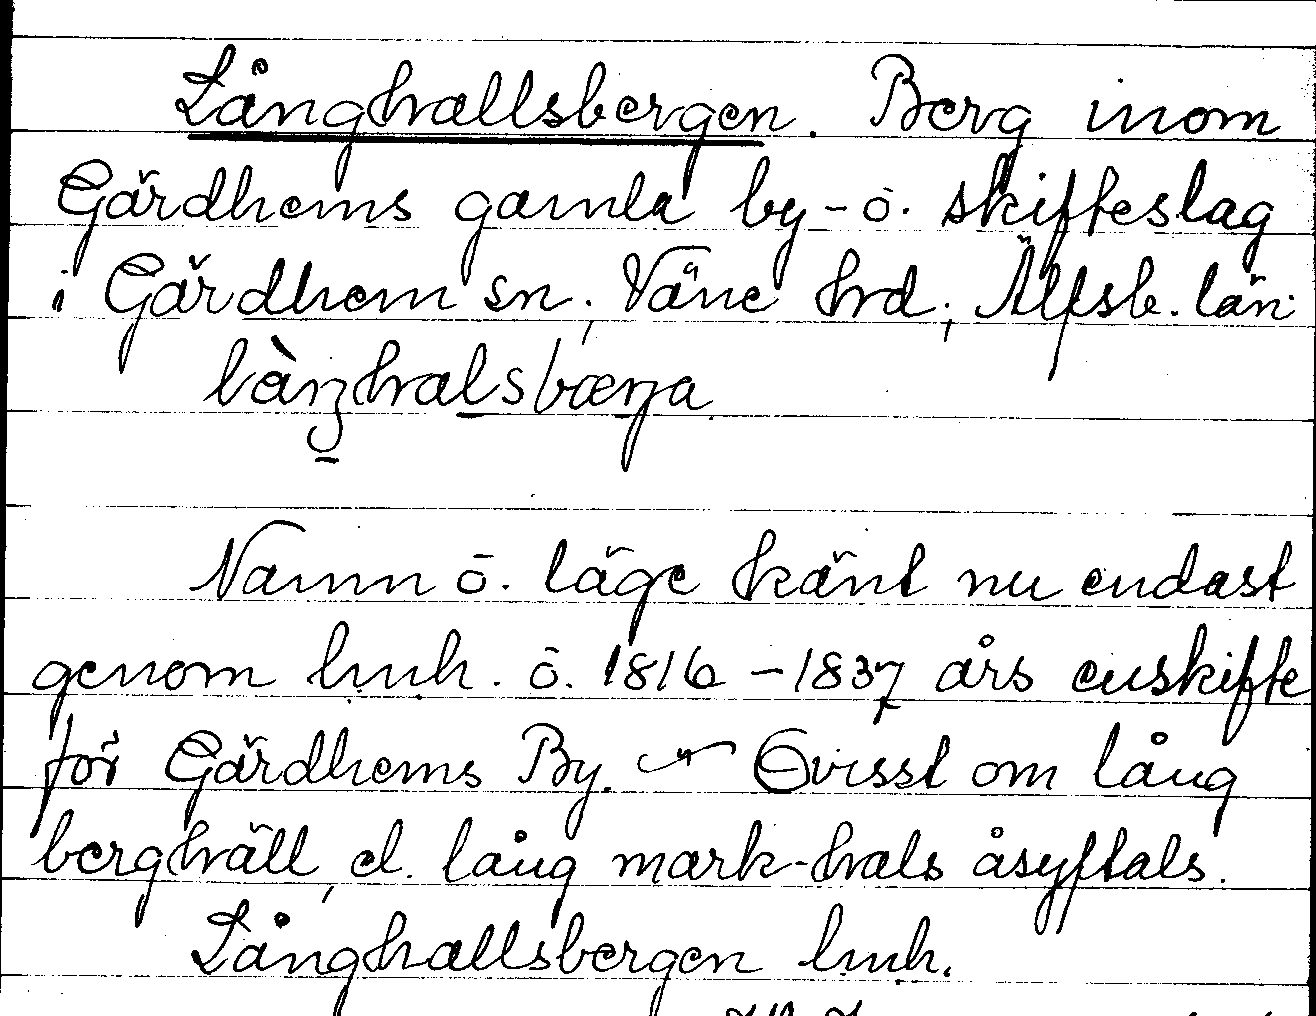 Långhallsbergen. Berg inom
Gärdhems gamla by- o. skifteslag
i Gärdhem sn, Väne hrd, Älfsb. län.
làŋhalsbærja
Namn o. läge känt nu endast
genom lmh. o. 1816-1837 års enskifte
för Gärdhems By. Ovisst om lång
berghäll, el. lång mark-hals åsyftats.
Långhallsbergen lmh.